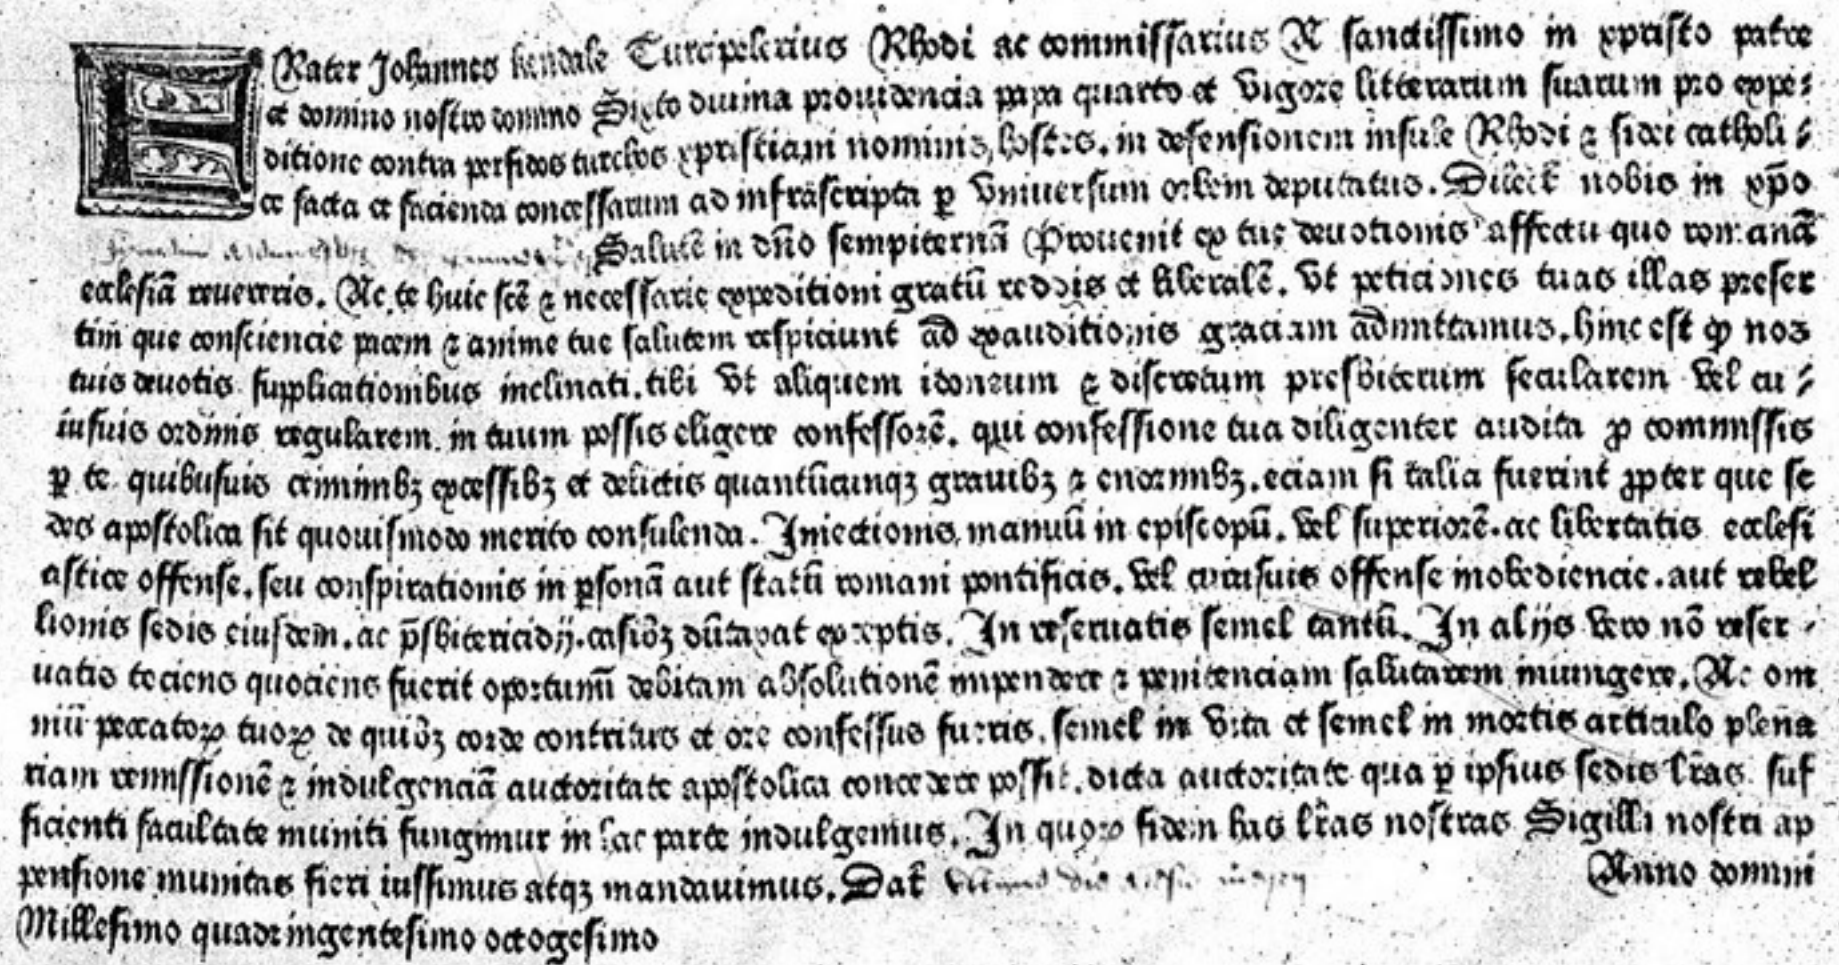 FRater Johannes kendale Turcipelerius Rhodi ac commissarius A sanctissimo in xpristo patre
et domino nostro domino Sixto diuina prouidencia papa quarto et vigore litterarum suarum pro expe⸗
ditione contra perfidos turchos xpristiani nominis hostes. in defensionem insule Rhodi ⁊ fidei catholi⸗
ce facta et facienda concessarum ad infrascripta ꝑ vniuersum orbem deputatus. Dilect̄ nobis in xp̄o
Salutē in dn̄o sempiternā Prouenit ex tue deuotionis affectu quo romanā
ecclesiā reuereris. Ac te huic scē ⁊ necessarie expeditioni gratū reddis et liberalē. vt peticiones tuas illas preser
tim̄ que consciencie pacem ⁊ anime tue salutem respiciunt ad exauditionis graciam admittamus. hinc est ꝙ nos
tuis deuotis supplicationibus inclinati. tibi vt aliquem idoneum ⁊ discretum presbiterum secularem vel cu⸗
iusuis ordinis regularem. in tuum possis eligere confessorē. qui confessione tua diligenter audita ꝓ commissis
ꝑ te quibusuis criminibꝫ excessibꝫ et delictis quantūcunqꝫ grauibꝫ ⁊ enormibꝫ. eciam si talia fuerint ꝓpter que se
des apostolica sit quouismodo merito consulenda. Iniectionis manuū in episcopū. vel superiorē. ac libertatis ecclesi
astice offense. seu conspirationis in ꝑsonā aut statū romani pontificis. vel cuiusuis offense inobediencie. aut rebel
lionis sedis eiusdem. ac p̄sbitericidij. casibꝫ dūtaxat exceptis. In reseruatis semel tantū. In alijs vero nō reser⸗
uatis tociens quociens fuerit oportunū debitam absolutionē impendere ⁊ penitenciam salutarem iniungere. Ac om
niū peccatoꝝ tuoꝝ de quibꝫ corde contritus et ore confessus fueris. semel in vita et semel in mortis articulo plena
riam remissionē ⁊ indulgenciā auctoritate apostolica concedere possit. dicta auctoritate qua ꝑ ipsius sedis lr̄as suf
ficienti facultate muniti fungimur in hac parte indulgemus. In quoꝝ fidem has lr̄as nostras Sigilli nostri ap
pensione munitas fieri iussimus atqꝫ mandauimus. Dat̄ Anno domini
Millesimo quadringentesimo octogesimo